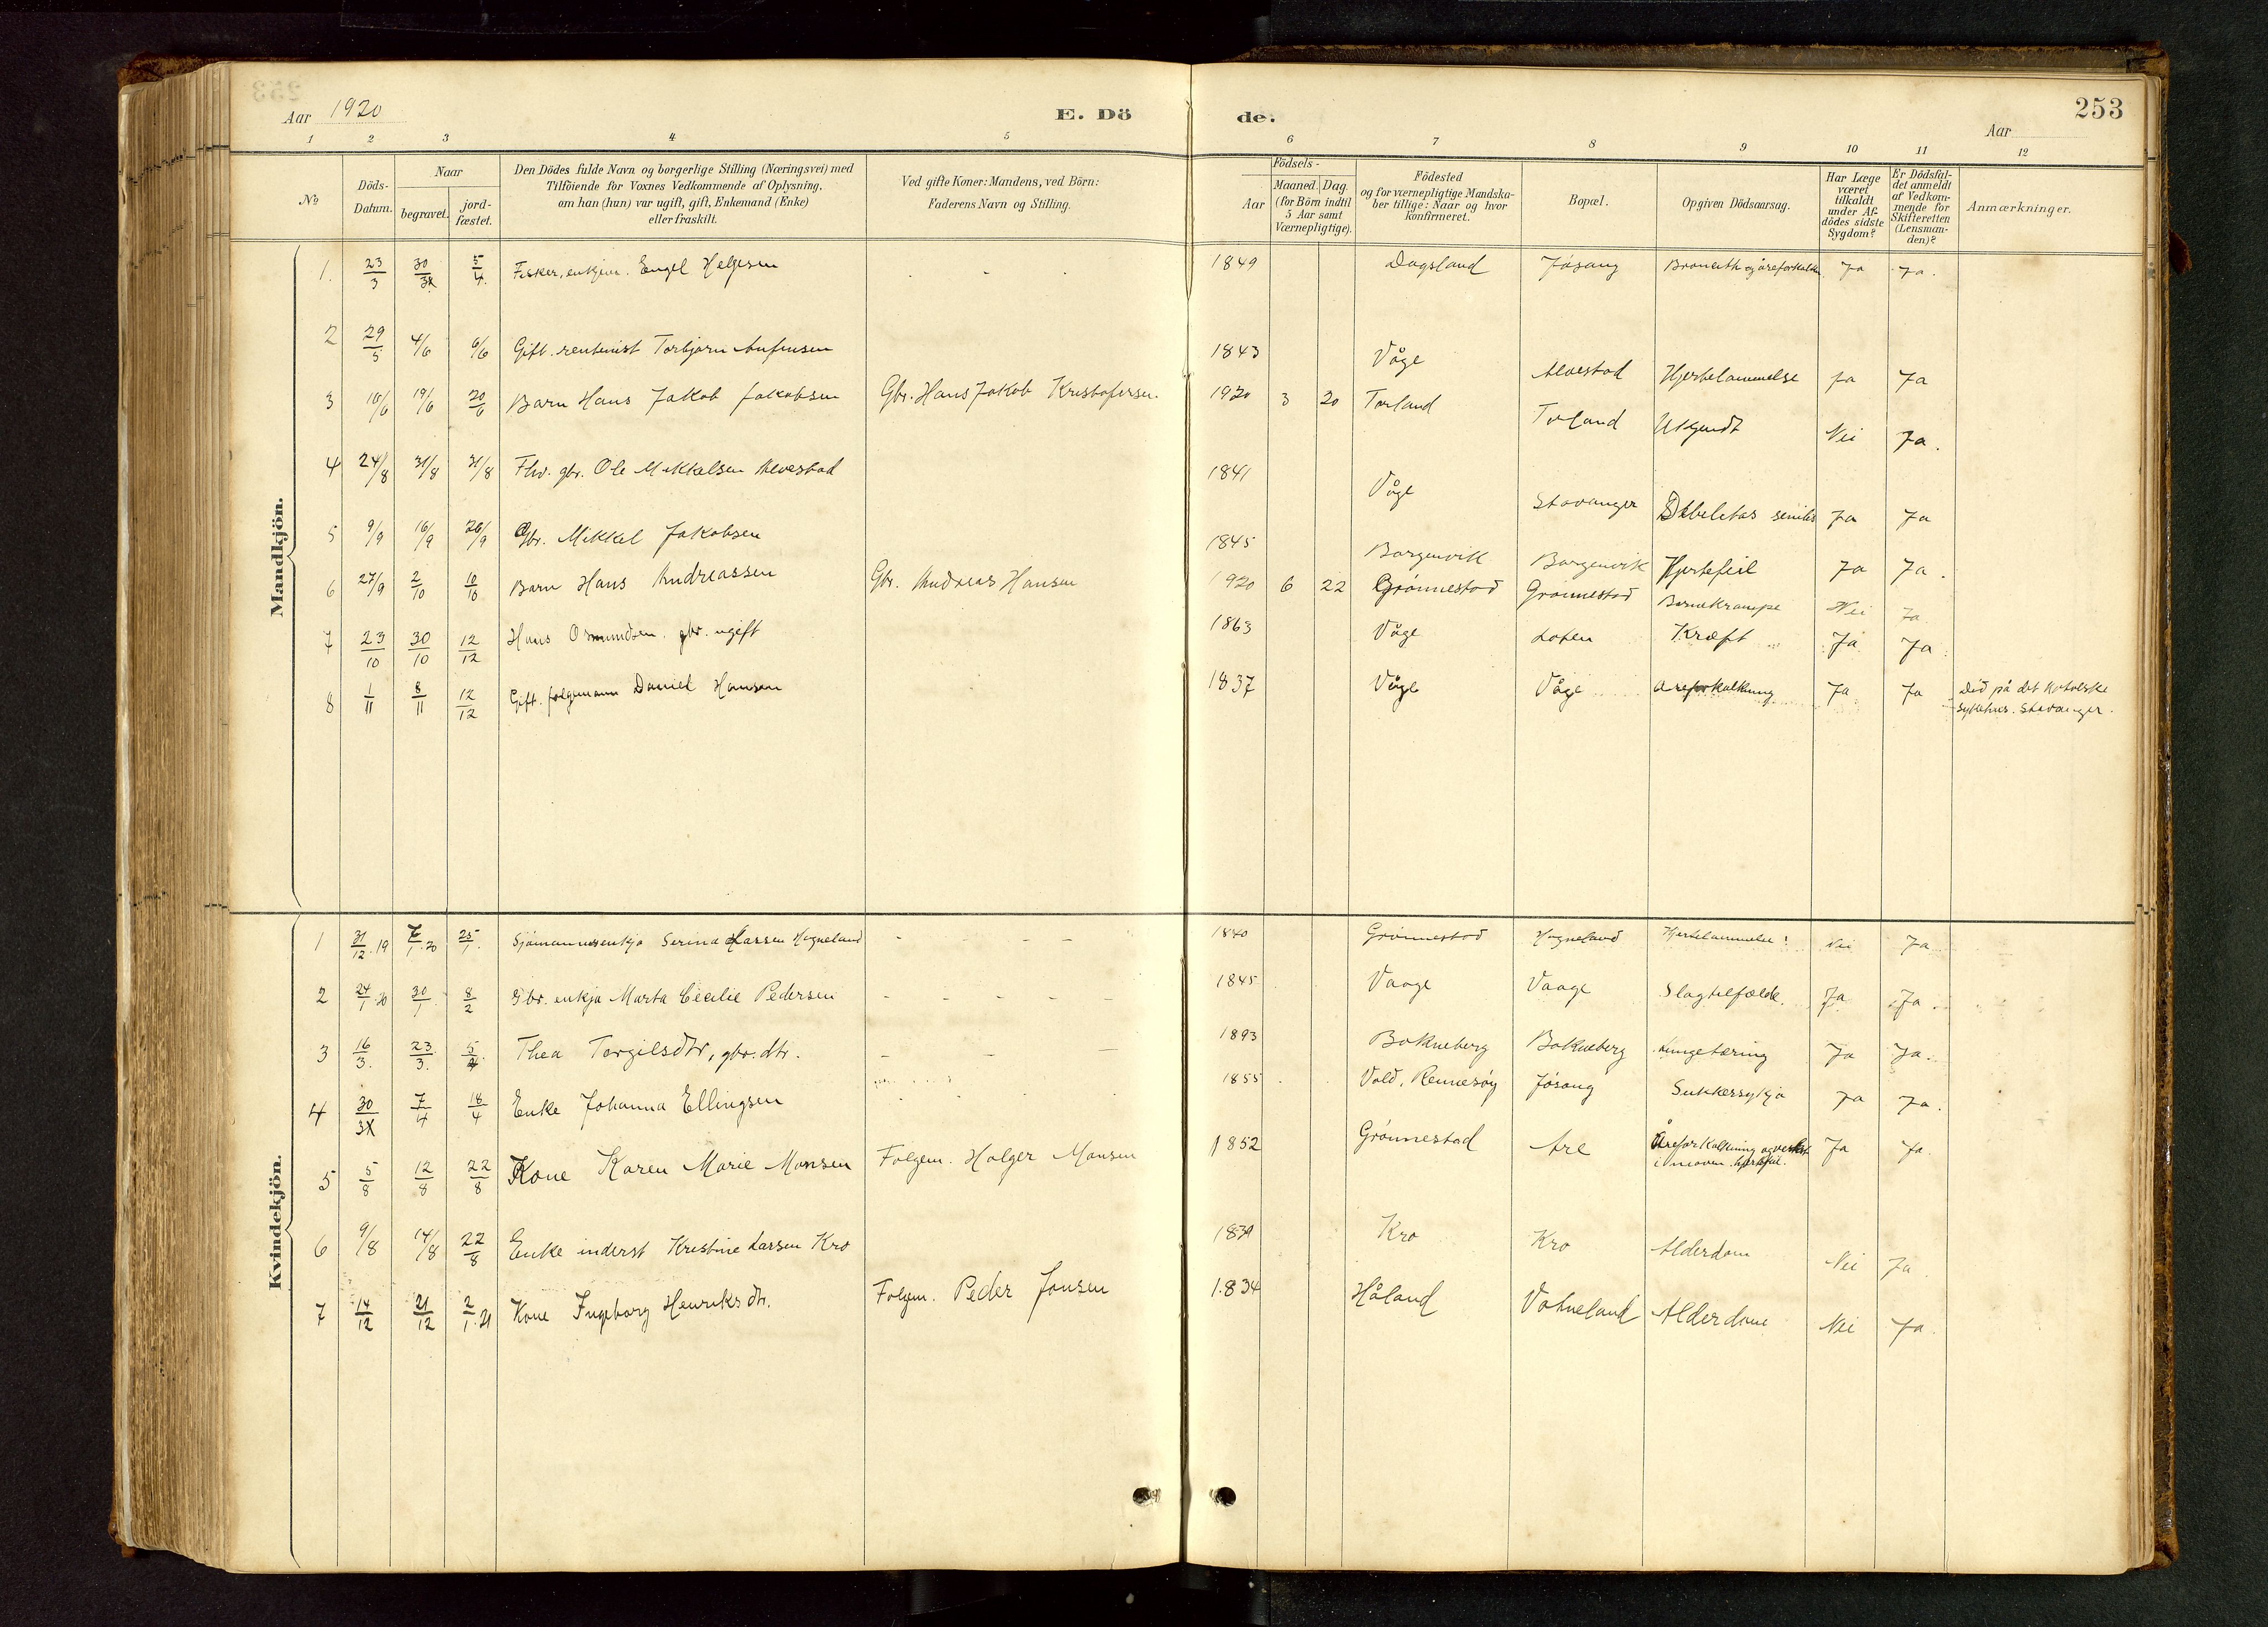 Aar 1920 E. Dö de. 253
Aar
1 2 3 4 5 6 7 8 9 10 11 12
No Döds-Datum. Naar begravet. jord-fæstet. Den Dödes fulde Navn og borgerlige Stilling (Næringsvei) med Tilföiende for Voxnes Vedkommende af Oplysning, om han (hun) var ugift, gift, Enkemand (Enke) eller fraskilt. Ved gifte Koner: Mandens, ved Börn: Faderens Navn og Stilling. Födsels- Aar Maaned. Dag. (for Börn indtil 5 Aar samt Værnepligtige). Födested og for værnepligtige Mandskaber tillige: Naar og hvor Konfirmeret. Bopæl. Opgiven Dödsaarsag. Har Læge været tilkaldt under Afdödes sidste Sygdom? Er Dödsfaldet anmeldt af Vedkommende for Skifteretten (Lensmanden)? Anmærkninger.
Mandkjön.
1. 23/3 30/3 5/4. Fisker, enkjem. Engel Helgesen - - - 1849 Dagsland Jøsang Bronkith og åreforkalkn. Ja Ja.
2 29/5 4/6 6/6 Gift. rentenist Torbjørn Anfinsen 1843 Våge Alvestad Hjertelammelse Ja Ja
3 10/6 19/6 20/6 Barn Hans Jakob Jakobsen Gbr. Hans Jakob Kristofersen. 1920 3 20 Torland Torland Ukjendt Nei Ja.
4 24/8 31/8 31/8 Fhv. gbr. Ole Mikkelsen Alvestad 1841 Våge Stavanger Debeletas senilis Ja Ja
5 9/9 16/9 26/9 Gbr. Mikkel Jakobsen 1845 Borgenvik Borgenvik Hjertefeil Ja Ja.
6 27/9 2/10 10/10 Barn Hans Andreassen Gbr. Andreas Hansen 1920 6 22 Grønnestad Grønnestad Barnekrampe Nei Ja
7 23/10 30/10 12/12 Hans Osmundsen. gbr. ugift 1863 Våge Loten Kræft Ja Ja
8 1/11 8/11 12/12 Gift. følgemann Daniel Hansen 1837 Våge Våge Åreforkalkning Ja Ja Død på det katolske
sykehus. Stavanger.
Kvindekjön.
1 31/12.19 7/1.20 25/1. Sjømannsenkja Serina Larsen Hogneland - - - - 1840 Grønnestad Hogneland Hjertelammelse! Nei Ja
2 24/1.20 30/1. 8/2 Gbr. enkja Marta Cecilie Pedersen - - - - - 1845 Vaage Vaage Slagtilfælde. Ja Ja.
3 16/3. 23/3. 5/4. Thea Torgilsdtr, gbr. dtr. - - - 1893 Bokneberg Bokneberg Lungetæring Ja Ja.
4 30/3 7/4 18/4 Enke Johanna Ellingsen 1855 Vold, Rennesøy Jøsang Sukkersykja Ja Ja.
5 5/8 12/8 22/8 Kone Karen Marie Monsen Følgem. Holger Monsen 1852 Grønnestad Are Åreforkalkning og vekst
i maven. hjertefeil. Ja Ja.
6 9/8 14/8 22/8 Enke inderst Kristine Larsen Kro Kro Kro Alderdom Nei Ja
7 14/12 21/12 2/1.21 Kone Ingeborg Henriksdtr. Følgem. Peder Jonsen 1834 Håland Vatneland Alderdom Nei Ja.